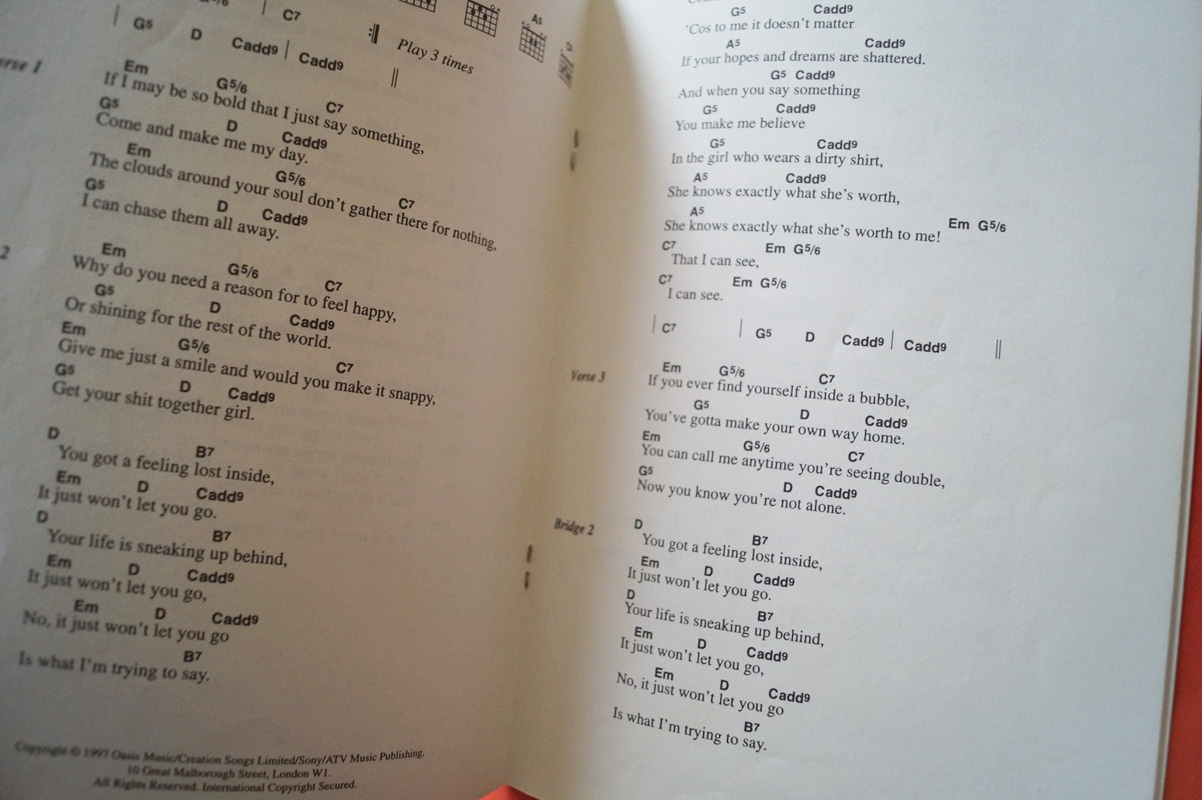 C7
A5
G5 D Cadd9 Cadd9
Play 3 times
Em G5/6 C7
If I may be so bold that I just say something,
G5 D Cadd9
Come and make me my day.
Em G5/6 C7
The clouds around your soul don't gather there for nothing,
G5 D Cadd9
I can chase them all away.
2
Em G5/6 C7
Why do you need a reason for to feel happy,
G5 D Cadd9
Or shining for the rest of the world.
Em G5/6 C7
Give me just a smile and would you make it snappy,
G5 D Cadd9
Get your shit together girl.
D B7
You got a feeling lost inside,
Em D Cadd9
It just won't let you go.
D B7
Your life is sneaking up behind,
Em D Cadd9
It just won't let you go,
Em D Cadd9
No, it just won't let you go
B7
Is what I'm trying to say.
Copyright © 1997 Oasis Music/Creation Songs Limited/Sony/ATV Music Publishing,
10 Great Malborough Street, London W1.
All Rights Reserved. International Copyright Secured.
G5 Cadd9
'Cos to me it doesn't matter
A5 Cadd9
If your hopes and dreams are shattered.
G5 Cadd9
And when you say something
G5 Cadd9
You make me believe
G5 Cadd9
In the girl who wears a dirty shirt,
A5 Cadd9
She knows exactly what she's worth,
A5 Em G5/6
She knows exactly what she's worth to me!
C7 Em G5/6
That I can see,
C7 Em G5/6
I can see.
C7 G5 D Cadd9 Cadd9
Verse 3
Em G5/6 C7
If you ever find yourself inside a bubble,
G5 D Cadd9
You've gotta make your own way home.
Em G5/6 C7
You can call me anytime you're seeing double,
G5 D Cadd9
Now you know you're not alone.
Bridge 2
D B7
You got a feeling lost inside,
Em D Cadd9
It just won't let you go.
D B7
Your life is sneaking up behind,
Em D Cadd9
It just won't let you go,
Em D Cadd9
No, it just won't let you go
B7
Is what I'm trying to say.